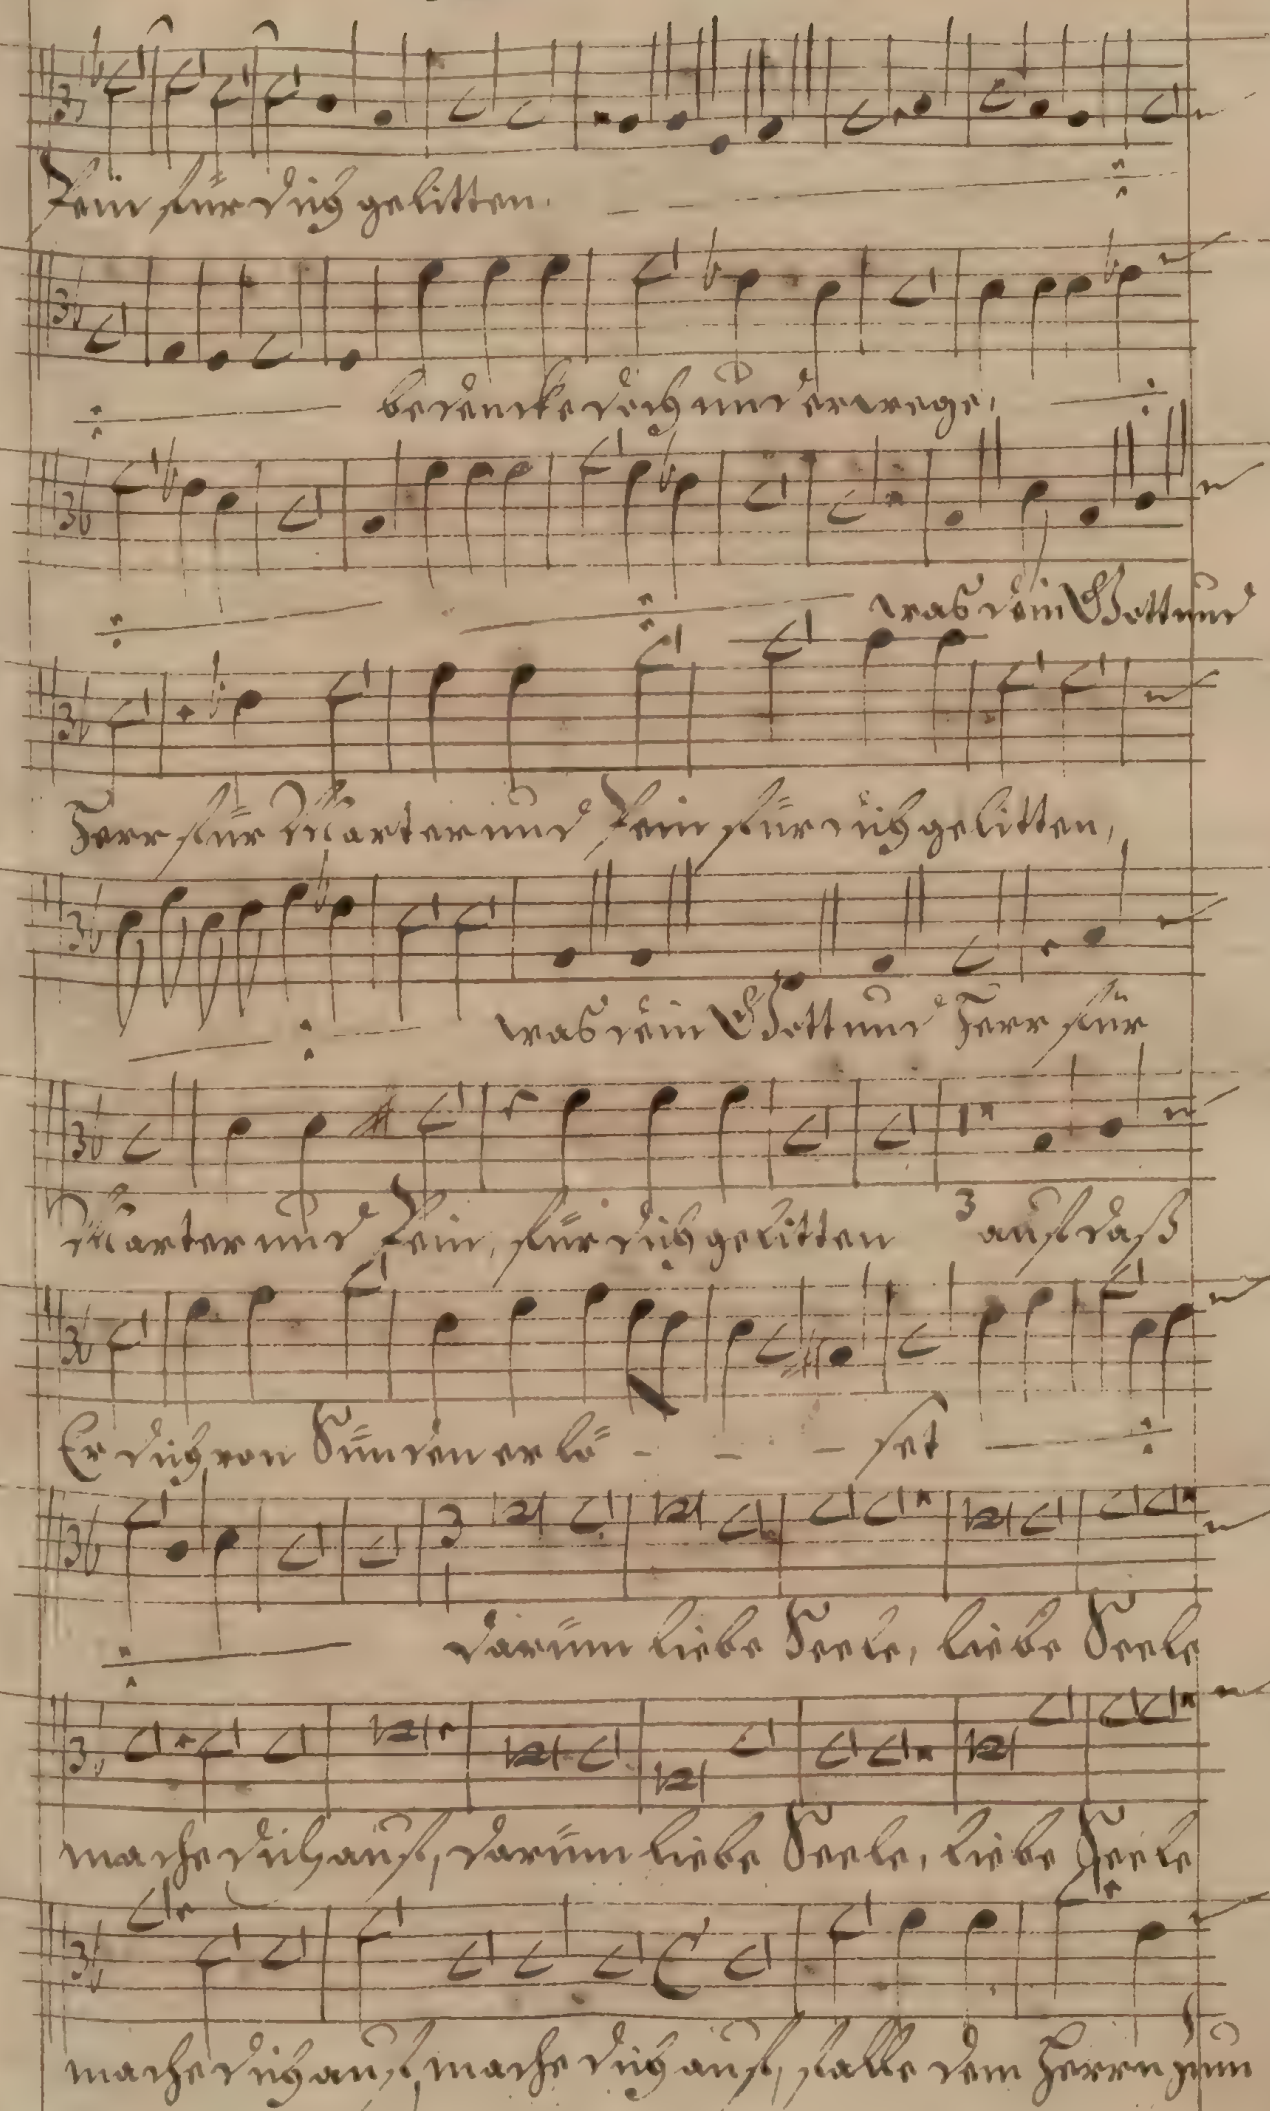 Pein für dich gelitten.
bedencke doch und erwege,
was dein Gott und
Herr für Marter und Pein für dich gelitten,
was dein Gott und Herr für
Marter und Pein, für dich gelitten 3 auf daß
Er dich von Sünden erlö - - - set
3
darüm liebe Seele, liebe Seele
mache dich auf, darüm liebe Seele, liebe Seele
mache dich auf, mache dich auf, falle dem Herrn zun